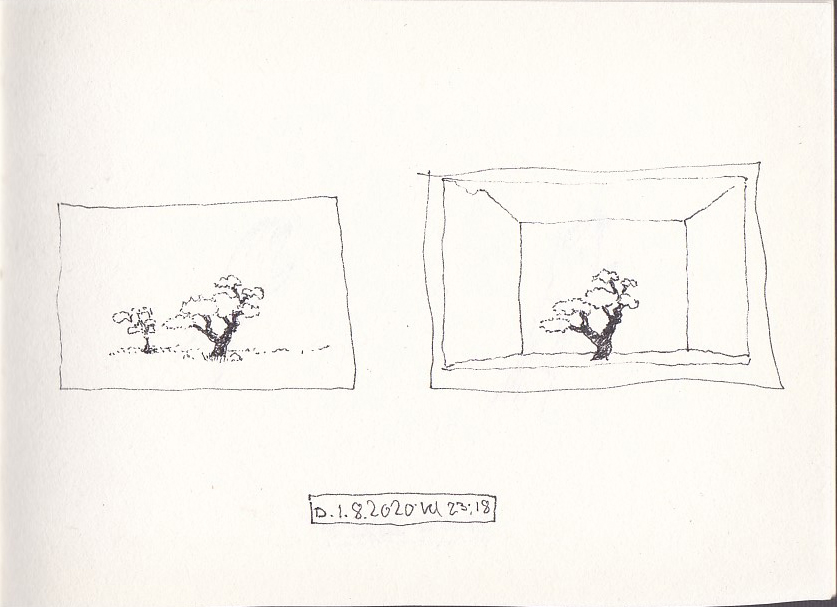 D.1.8.2020 VU 23:18